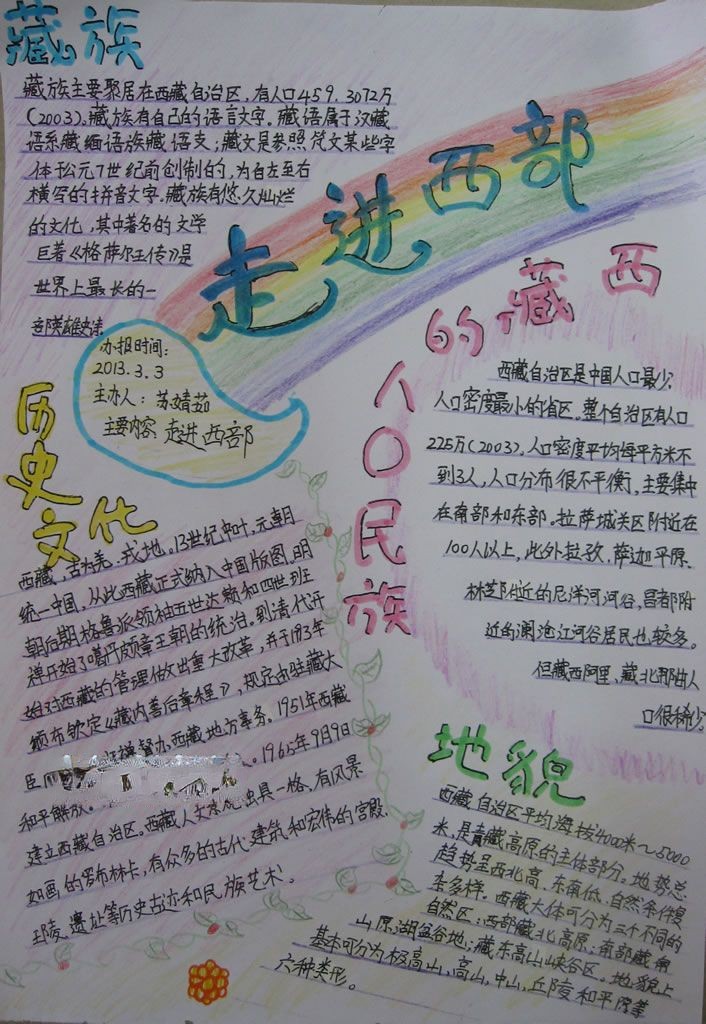 藏族
藏族主要聚居在西藏自治区,有人口459.3072万
(2003)。藏族有自己的语言文字。藏语属于汉藏
语系藏缅语族藏语支;藏文是参照梵文某些字
体于公元7世纪前创制的,为自左至右
横写的拼音文字。藏族有悠久灿烂
的文化,其中著名的文学
巨著《格萨尔王传》是
世界上最长的一
部英雄史诗
走进西部
办报时间:
2013.3.3
主办人:苏婧茹
主要内容:走进西部
西藏的人口民族
西藏自治区是中国人口最少,
人口密度最小的省区。整个自治区有人口
225万(2003),人口密度平均每平方米不
到3人,人口分布很不平衡,主要集中
在南部和东部。拉萨城关区附近在
100人以上,此外拉孜,萨迦平原、
林芝附近的尼洋河河谷,昌都附
近的澜沧江河谷居民也较多。
但藏西阿里、藏北那曲人
口很稀少。
历史文化
西藏,古为羌、戎地。13世纪中叶,元朝
统一中国,从此西藏正式纳入中国版图。明
朝后期格鲁派领袖五世达赖和四世班
禅开始了噶丹颇章王朝的统治。到清代开
始对西藏的管理做出重大改革,并于1793年
颁布钦定《藏内善后章程》,规定由驻藏大
臣 督办西藏地方事务。1951年西藏
和平解放。 1965年9月9日
建立西藏自治区。西藏人文 独具一格,有风景
如画的罗布林卡,有众多的古代建筑和宏伟的宫殿、
王陵、遗址等历史古迹和民族艺术!
地貌
西藏自治区平均海拔4000米~5000
米,是青藏高原的主体部分。地势总
趋势呈西北高、东南低,自然条件复
杂多样。西藏大体可分为三个不同的
自然区:西部藏北高原;南部藏南
山原湖盆谷地;藏东高山峡谷区。地貌上
基本可分为极高山,高山,中山,丘陵和平原等
六种类形。